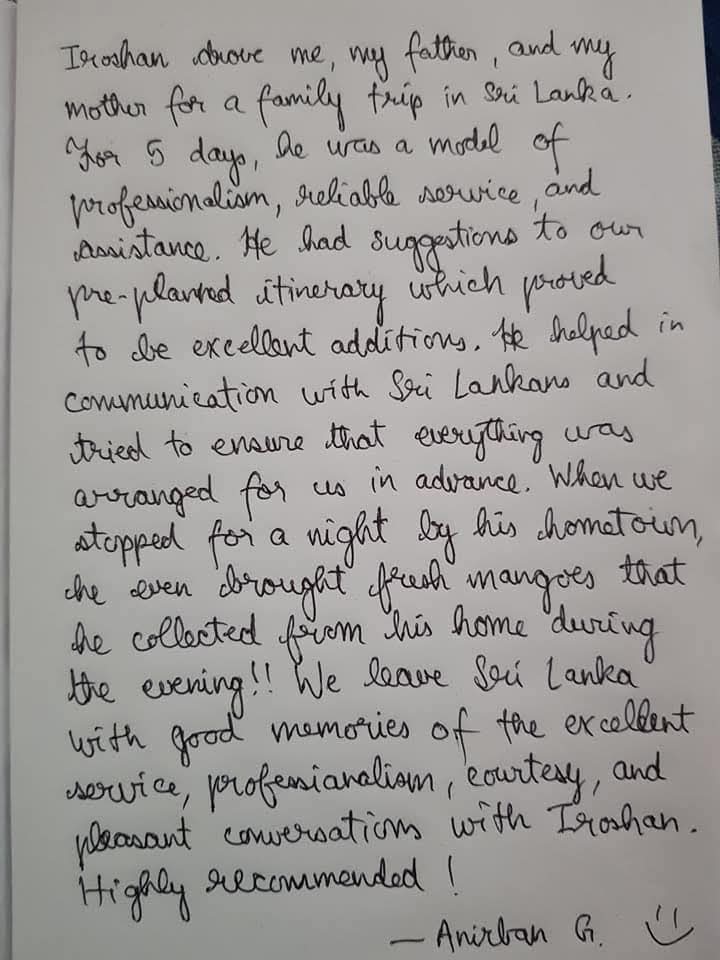 Iroshan drove me, my father, and my
mother for a family trip in Sri Lanka.
For 5 days, he was a model of
professionalism, reliable service, and
assistance. He had suggestions to our
pre-planned itinerary which proved
to be excellent additions. He helped in
communication with Sri Lankans and
tried to ensure that everything was
arranged for us in advance. When we
stopped for a night by his hometown,
he even brought fresh mangoes that
he collected from his home during
the evening!! We leave Sri Lanka
with good memories of the excellent
service, professionalism, courtesy, and
pleasant conversations with Iroshan.
Highly recommended!
— Anirban G.